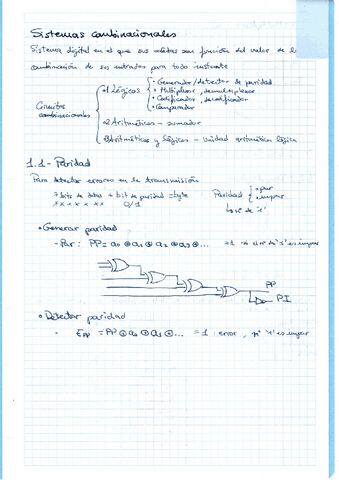 Sistemas combinacionales
Sistema digital en el que sus salidas son función del valor de la
combinación de sus entradas para todo instante
Circuitos combinacionales
1 Lógicos
• Generador/detector de paridad
• Multiplexor, demultiplexor
• Codificador, decodificador
• Comparador
2 Aritméticos - sumador
Aritméticos y lógicos - unidad aritmético lógica
1.1- Paridad
Para detectar errores en la transmisión
7 bits de datos + bit de paridad = byte
x x x x x x 0/1
Paridad
par
impar
nº de '1'
• Generar paridad
- Par: PP = a0 ⊕ a1 ⊕ a2 ⊕ a3 ⊕... = 1 si nº de '1' es impar
PP
PI
• Detectar paridad
- EPP = PP ⊕ a0 ⊕ a1 ⊕... = 1 error, nº '1' es impar